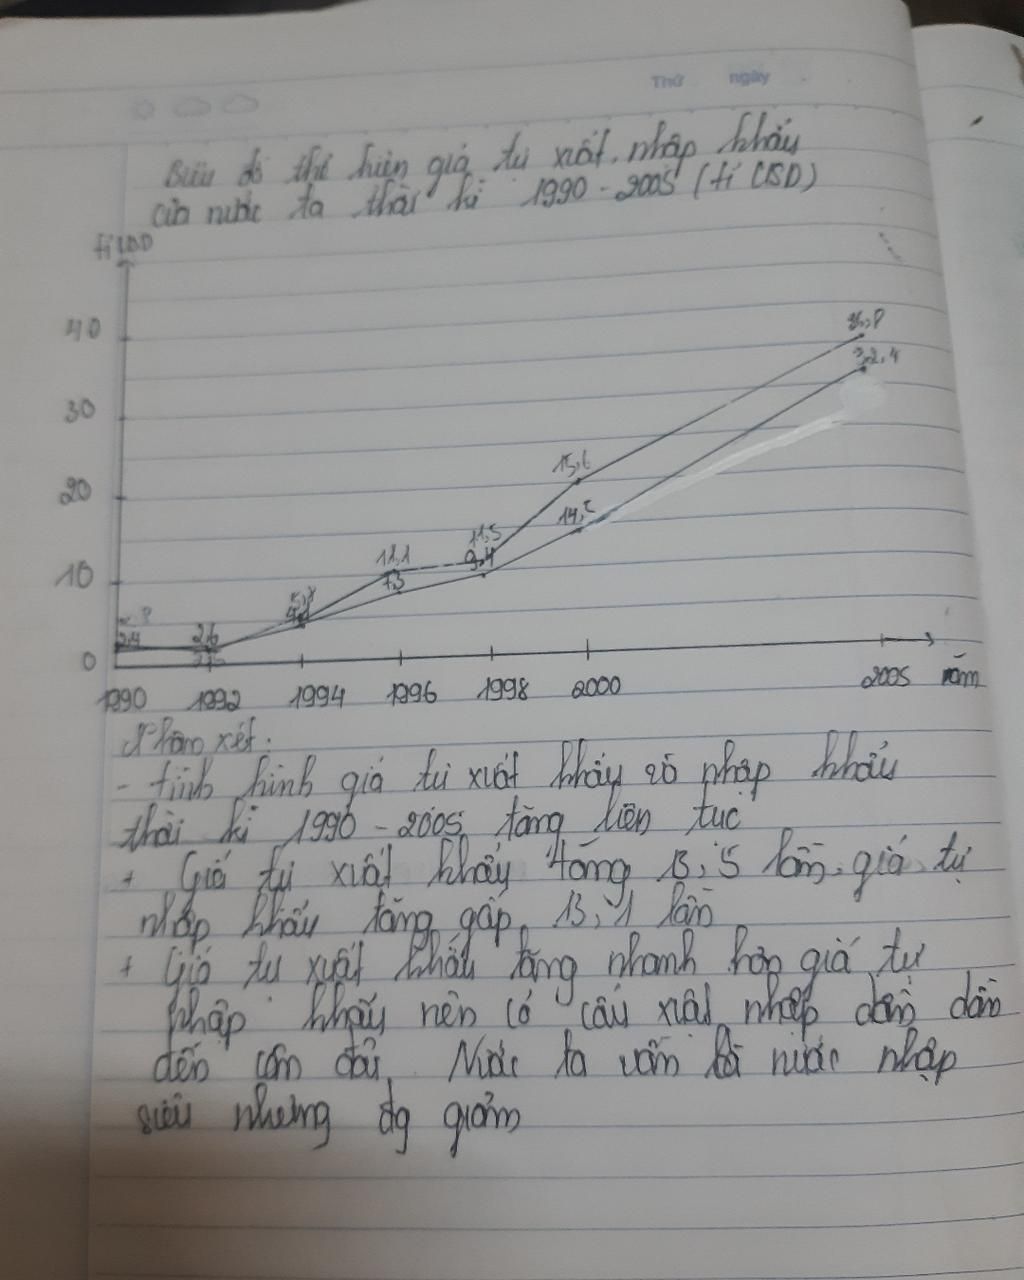 Thứ ngày
Biểu đồ thể hiện giá trị xuất, nhập khẩu
của nước ta thời kì 1990 - 2005 (tỉ USD)
tỉ USD
40
36,8
32,4
30
20
15,6
14,5
11,5
12,1
9,4
7,3
10
5,8
2,4
2,6
0
1990 1992 1994 1996 1998 2000 2005 năm
Nhận xét:
- tình hình giá trị xuất khẩu và nhập khẩu
thời kì 1990 - 2005 tăng liên tục
+ Giá trị xuất khẩu tăng 13,5 lần, giá trị
nhập khẩu tăng gấp 13,1 lần
+ Giá trị xuất khẩu tăng nhanh hơn giá trị
nhập khẩu nên cơ cấu xuất nhập dần dần
đến cân đối. Nước ta vẫn là nước nhập
siêu nhưng đg giảm